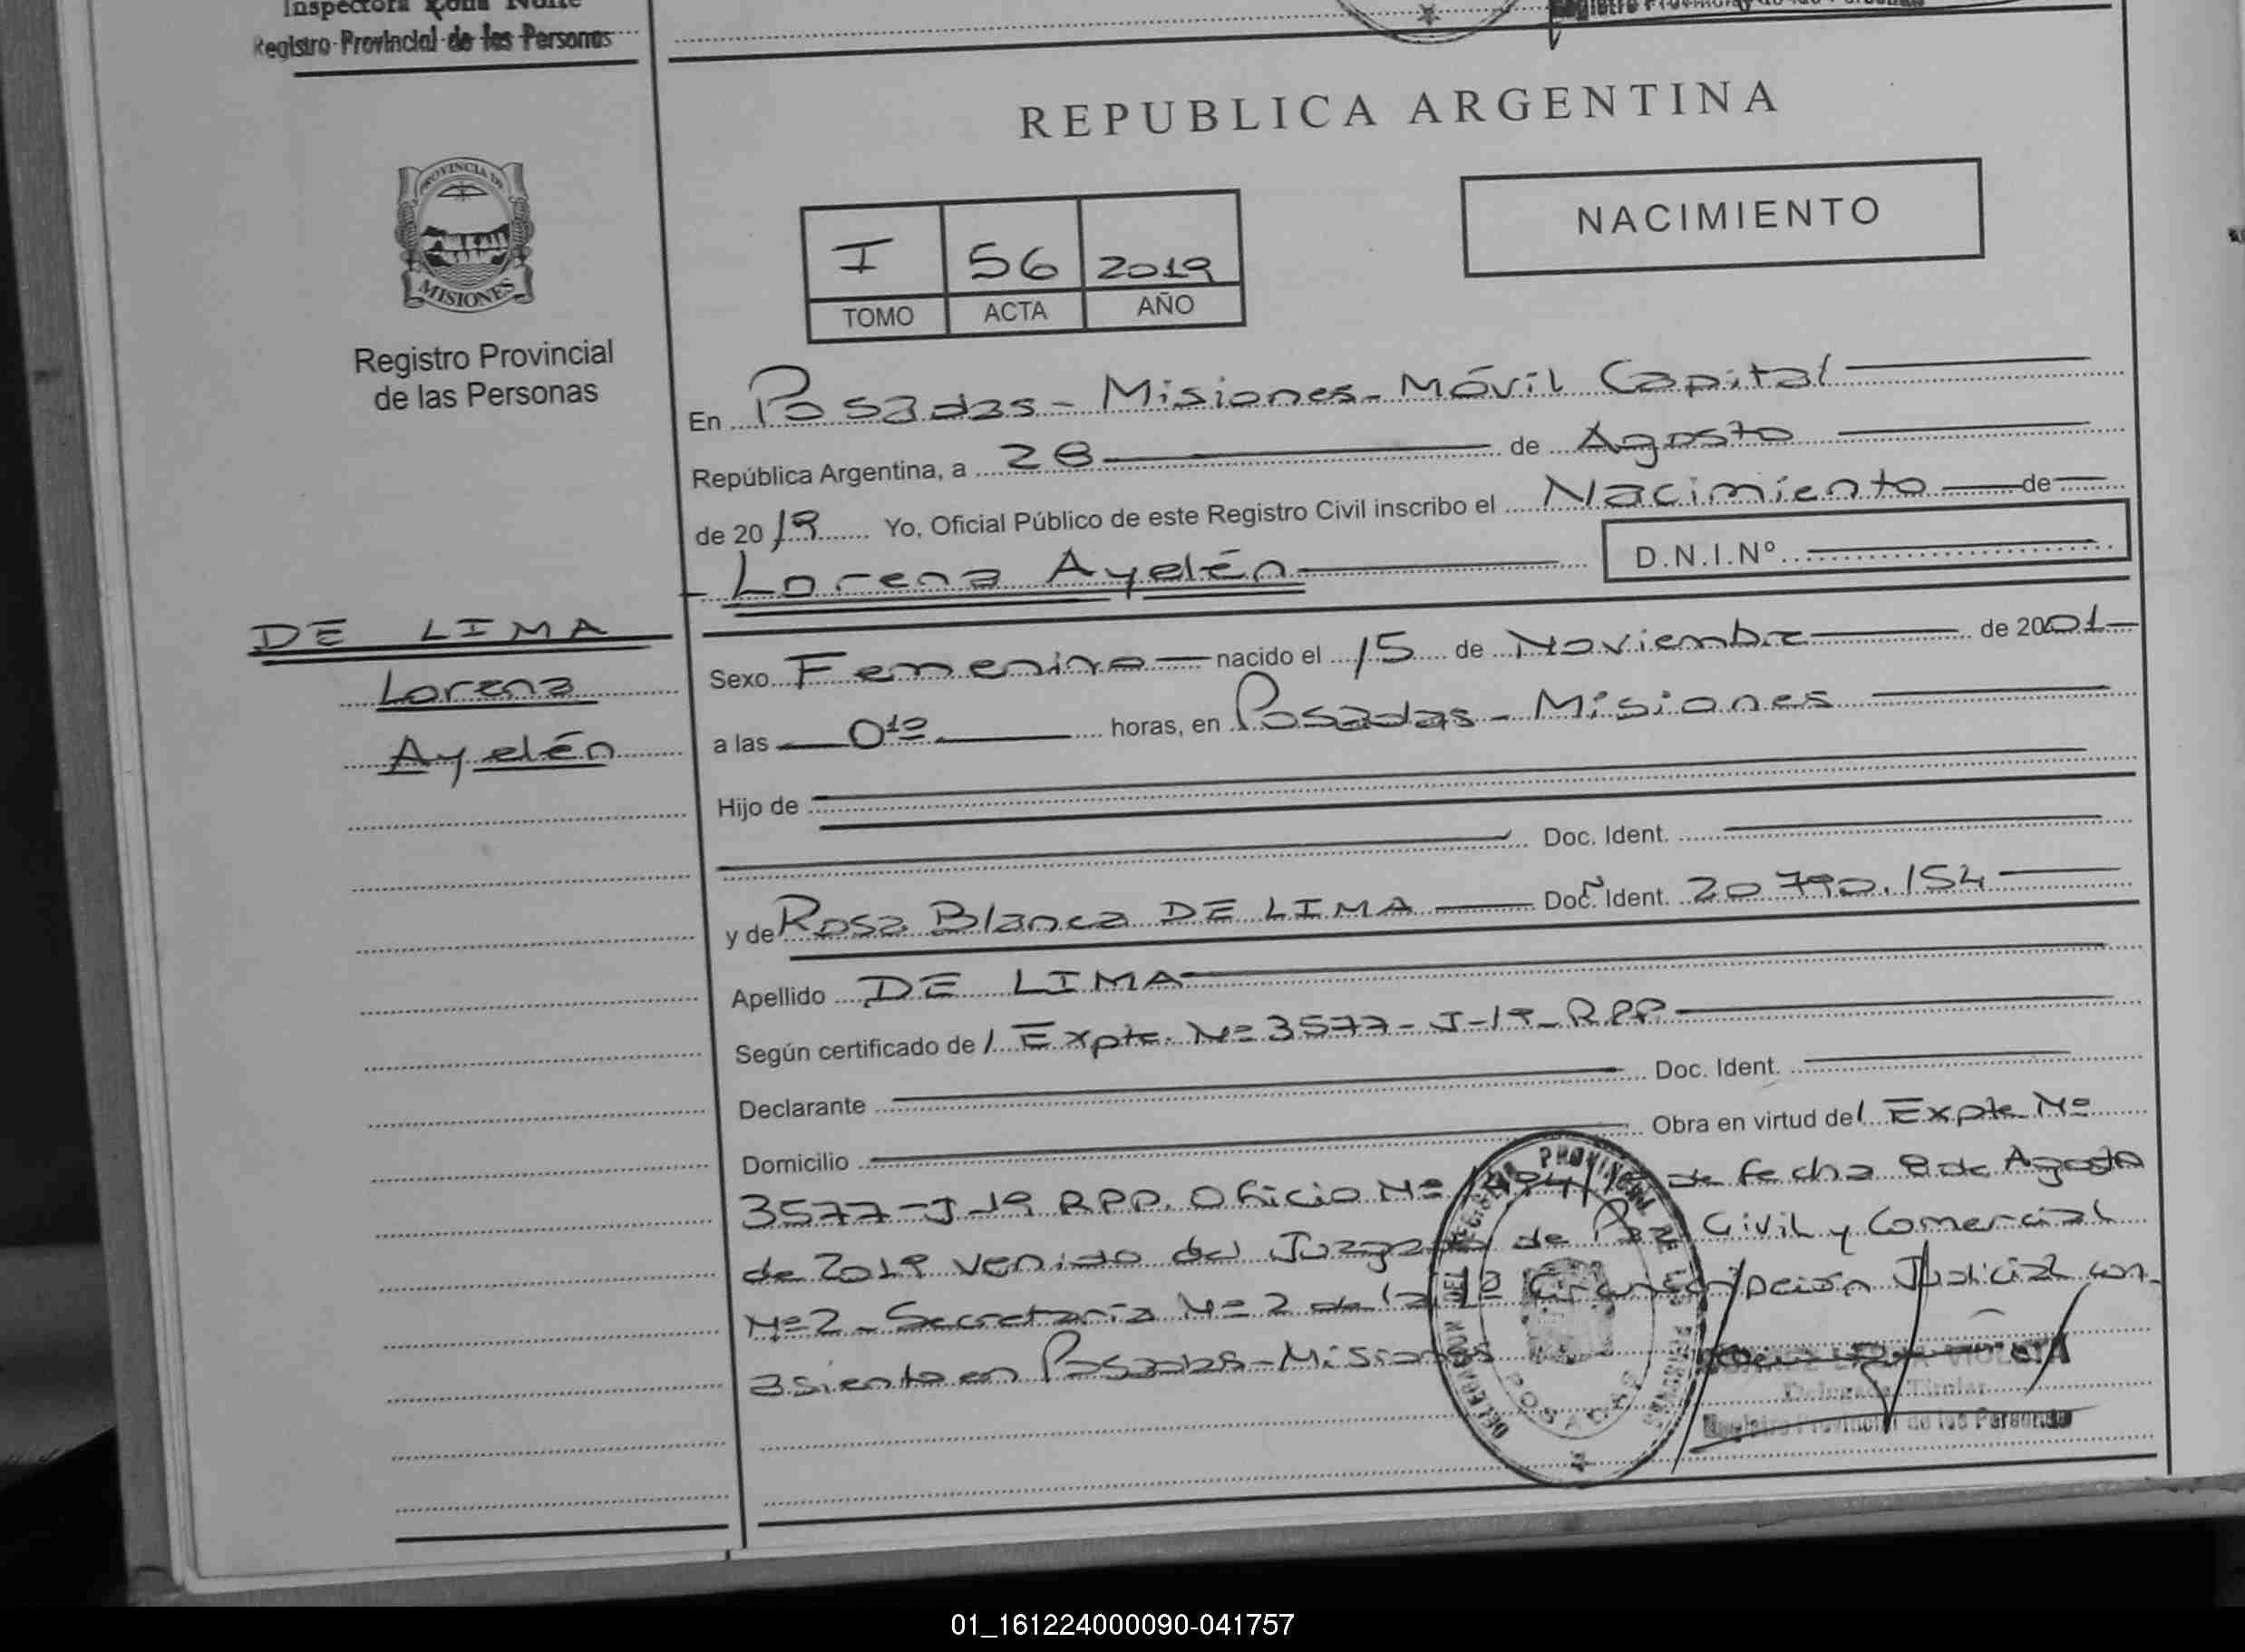 Inspectora Zona Norte
Registro Provincial de las Personas
REPUBLICA ARGENTINA
PROVINCIA DE
MISIONES
Registro Provincial
de las Personas
I 56 2019
TOMO ACTA AÑO
NACIMIENTO
En Posadas - Misiones - Móvil Capital
República Argentina, a 28 de Agosto
de 2019 Yo, Oficial Público de este Registro Civil inscribo el Nacimiento de
Lorena Ayelén D.N.I.Nº
DE LIMA
Lorena
Ayelén
Sexo Femenino nacido el 15 de Noviembre de 2001
a las 0¹⁰ horas, en Posadas - Misiones
Hijo de
Doc. Ident.
y de Rosa Blanca DE LIMA Doc. Ident. Nº 20.790.154
Apellido DE LIMA
Según certificado del Expte. Nº 3577-J-19-RPP
Declarante Doc. Ident.
Domicilio Obra en virtud del Expte Nº
3577-J-19 RPP. Oficio Nº de fecha 8 de Agosto
de 2019 venido del Juzgado de Paz Civil y Comercial
Nº2 - Secretaría Nº 2 de la 1ª Circunscripción Judicial con
asiento en Posadas - Misiones
DELEGACION DEL REGISTRO PROVINCIAL DE LAS PERSONAS
POSADAS
VIOLETA
Delegada Titular
Registro Provincial de las Personas
01_161224000090-041757